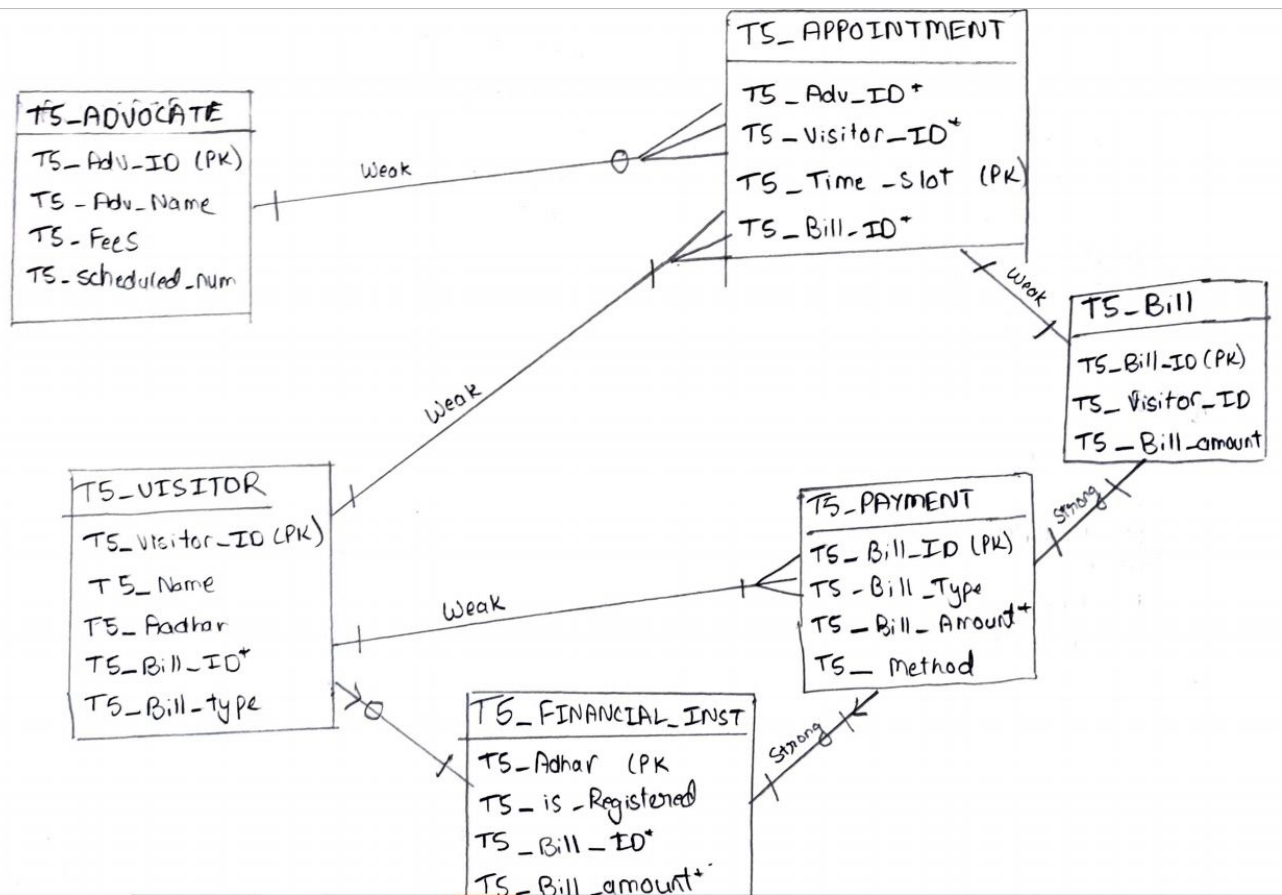 T5_ADVOCATE
T5_Adv_ID (PK)
T5-Adv_Name
T5-Fees
T5-scheduled_num
Weak
T5_APPOINTMENT
T5_Adv_ID*
T5_Visitor_ID*
T5_Time_Slot (PK)
T5_Bill-ID*
Weak
T5_Bill
T5_Bill-ID (PK)
T5_Visitor_ID
T5_Bill_amount
Weak
T5_VISITOR
T5_Visitor_ID (PK)
T5_Name
T5_Aadhar
T5_Bill_ID*
T5_Bill-type
Weak
Strong
T5_PAYMENT
T5_Bill_ID (PK)
T5-Bill_Type
T5_Bill_Amount*
T5_Method
Strong
T5_FINANCIAL_INST
T5-Adhar (PK
T5_is_Registered
T5_Bill_ID*
T5_Bill_amount*